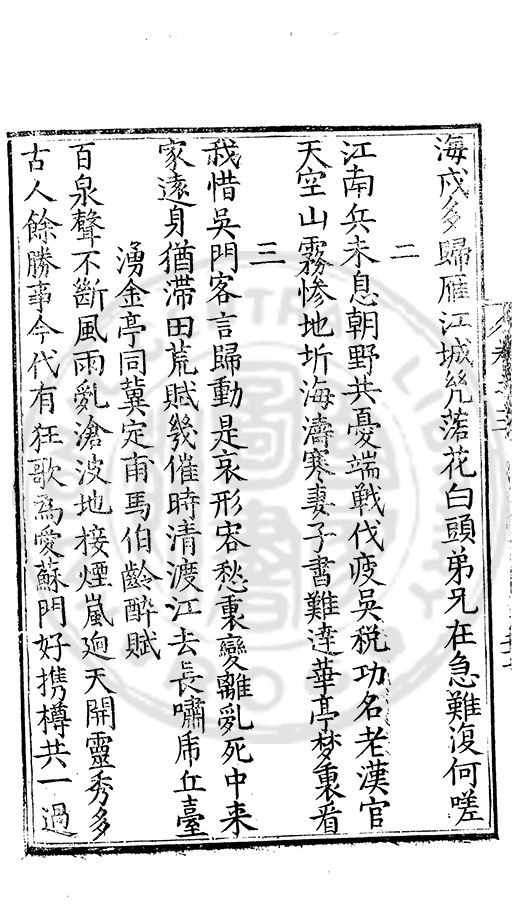 海戍多歸雁江城幾落花白頭弟兄在急難復何嗟
二
江南兵未息朝野共憂端戰伐疲吳税功名老漢官
天空山霧慘地坼海濤寒妻子書難達華亭梦裏看
三
我惜吳門客言歸動是哀形容愁裏變離亂死中来
家遠身猶滯田荒賦幾催時清渡江去長嘯虎丘臺
湧金亭同冀定甫馬伯齡醉賦
百泉聲不斷風雨亂滄波地接煙嵐迥天開靈秀多
古人餘勝事今代有狂歌為愛蘇門好携樽共一過